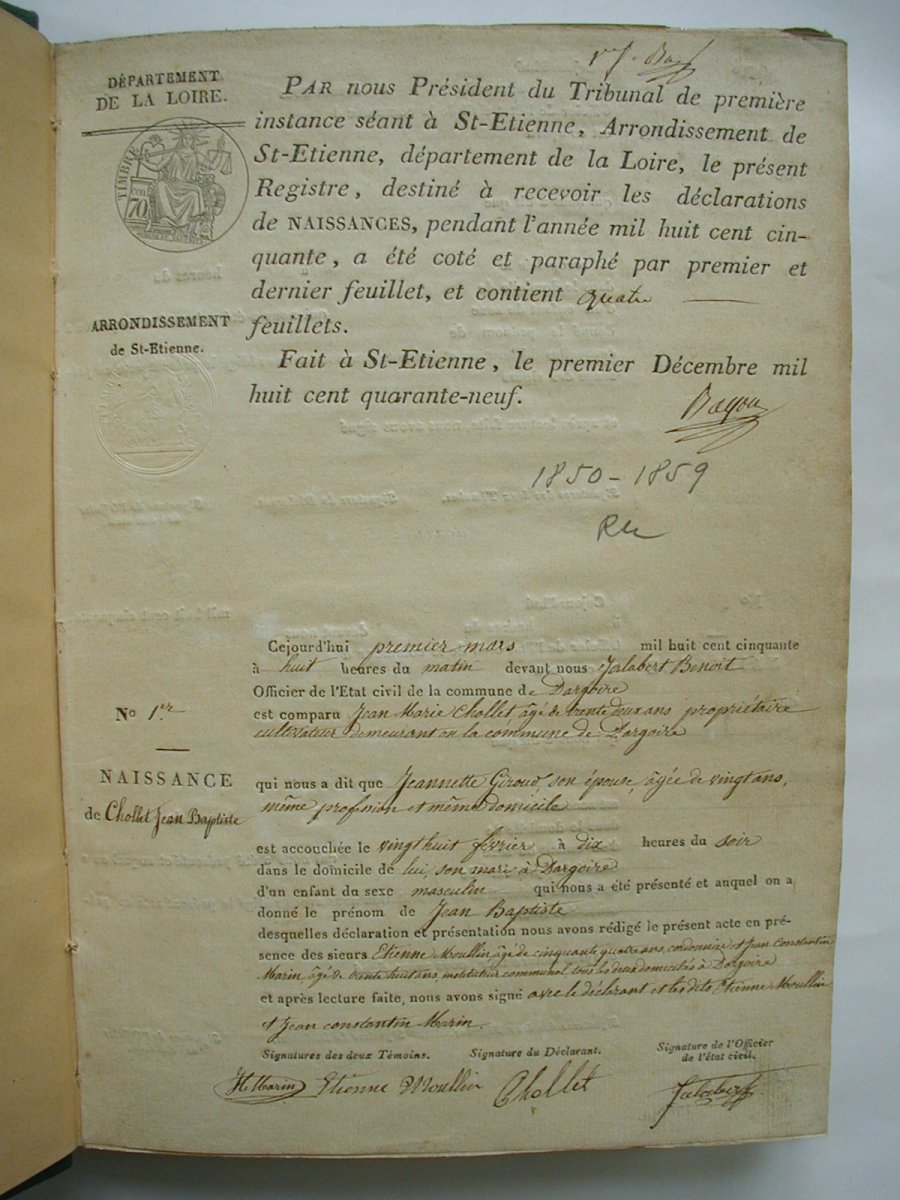 DÉPARTEMENT
DE LA LOIRE.
TIMBRE
70
PAR nous Président du Tribunal de première
instance séant à St-Etienne, Arrondissement de
St-Etienne, département de la Loire, le présent
Registre, destiné à recevoir les déclarations
de NAISSANCES, pendant l'année mil huit cent cin-
quante, a été coté et paraphé par premier et
dernier feuillet, et contient quatre
feuillets.
Fait à St-Etienne, le premier Décembre mil
huit cent quarante-neuf.
ARRONDISSEMENT
de St-Etienne.
1850 - 1859
Cejourd'hui premier mars mil huit cent cinquante
à huit heures du matin devant nous Jalabert Benoit
Officier de l'Etat civil de la commune de Dargoire
est comparu Jean Marie Chollet, âgé de trente deux ans propriétaire
cultivateur demeurant en la commune de Dargoire
No 1.er
NAISSANCE
de Chollet Jean Baptiste
qui nous a dit que Jeannette Giroud, son épouse, âgée de vingt ans,
même profession et même domicile
est accouchée le vingt huit février à dix heures du soir
dans le domicile de lui, son mari, à Dargoire
d'un enfant du sexe masculin qui nous a été présenté et auquel on a
donné le prénom de Jean Baptiste
desquelles déclaration et présentation nous avons rédigé le présent acte en pré-
sence des sieurs Etienne Moullin, âgé de cinquante quatre ans, cordonnier et Jean Constantin
Marin, âgé de trente huit ans, instituteur communal, tous les deux domiciliés à Dargoire
et après lecture faite, nous avons signé avec le déclarant et les dits Etienne Moullin
et Jean constantin Marin.
Signatures des deux Témoins. Signature du Déclarant. Signature de l'Officier
de l'état civil.
Marin Etienne Moullin Chollet Jalabert